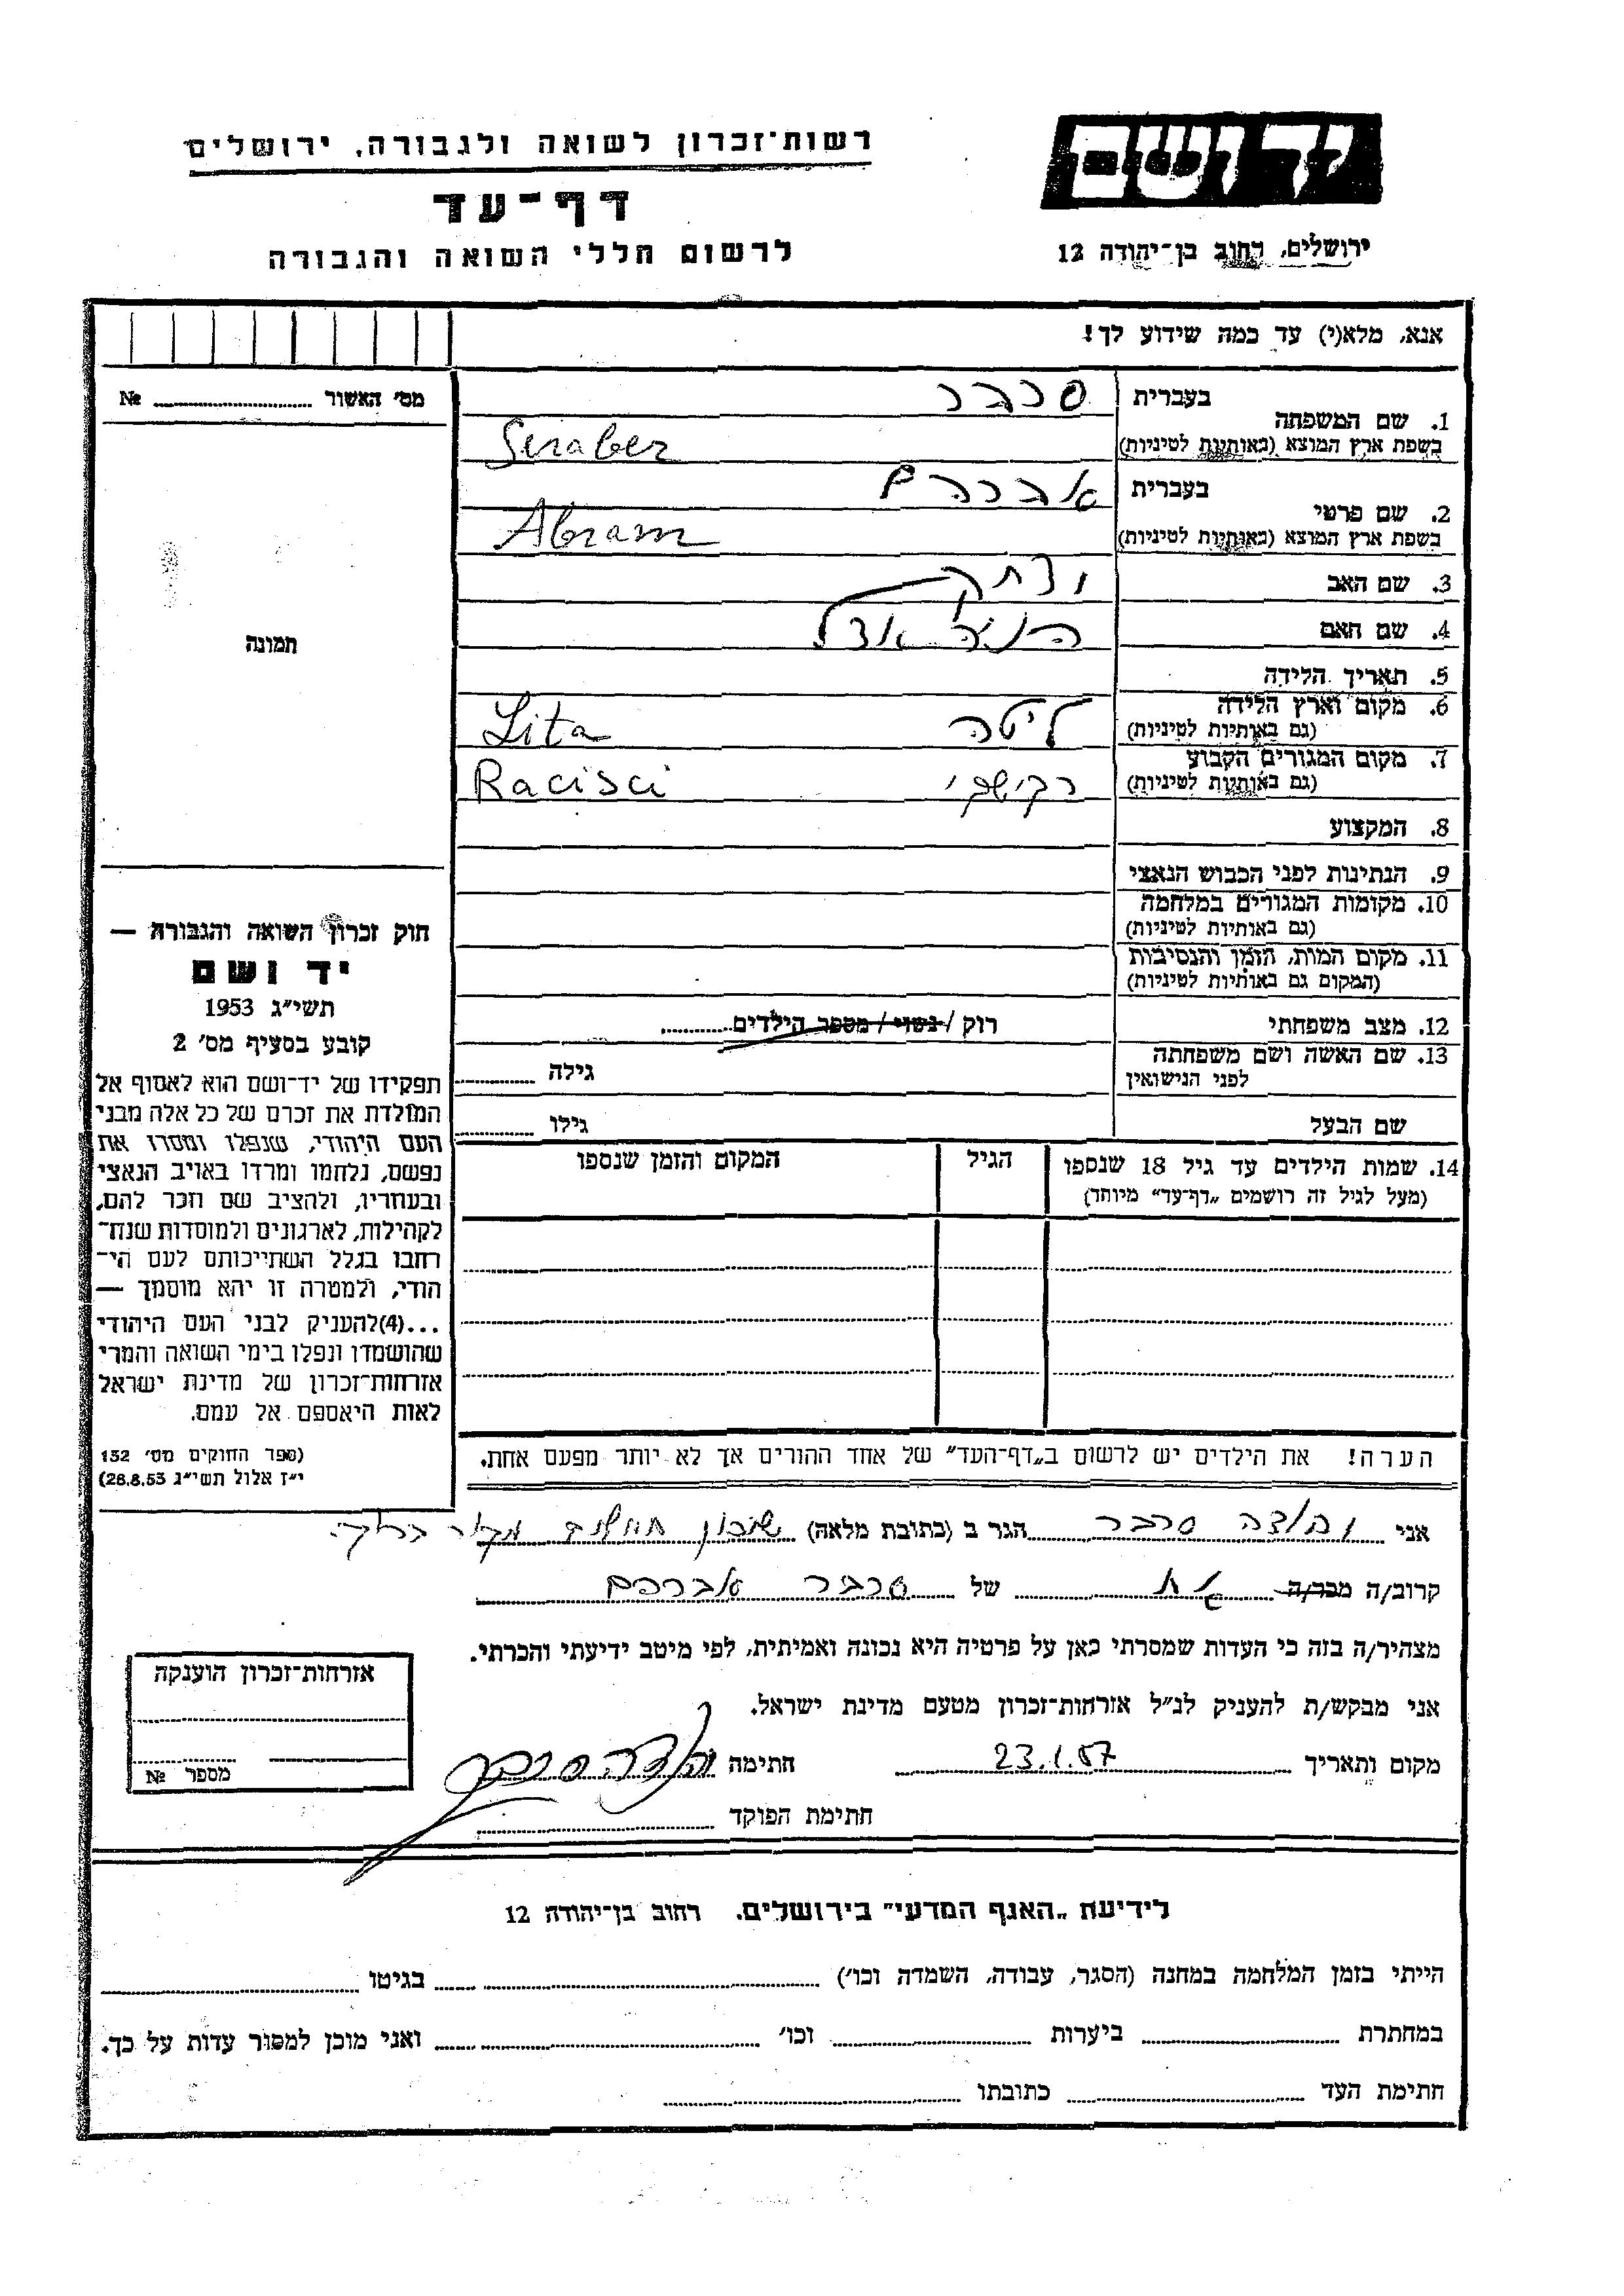 רשות־זכרון לשואה ולגבורה, ירושלים
יד ושם
דף־עד
לרשום חללי השואה והגבורה
ירושלים, רחוב בן־יהודה 12
אנא, מלא(י) עד כמה שידוע לך!
מס׳ האשור № ........
תמונה
1. שם המשפחה
בעברית סרבר
בשפת ארץ המוצא (באותיות לטיניות) Seraber
2. שם פרטי
בעברית אברהם
בשפת ארץ המוצא (באותיות לטיניות) Abram
3. שם האב
4. שם האם
5. תאריך הלידה
6. מקום וארץ הלידה ליטה Lita
(גם באותיות לטיניות)
7. מקום המגורים הקבוע רקישקי Racisci
(גם באותיות לטיניות)
8. המקצוע
9. הנתינות לפני הכבוש הנאצי
10. מקומות המגורים במלחמה
(גם באותיות לטיניות)
11. מקום המות, הזמן והנסיבות
(המקום גם באותיות לטיניות)
12. מצב משפחתי רוק / נשוי / מספר הילדים........
13. שם האשה ושם משפחתה
לפני הנישואין
גילה ........
שם הבעל גילו ........
14. שמות הילדים עד גיל 18 שנספו
(מעל לגיל זה רושמים „דף־עד” מיוחד)
הגיל
המקום והזמן שנספו
חוק זכרון השואה והגבורה —
יד ושם
תשי״ג 1953
קובע בסעיף מס׳ 2
תפקידו של יד־ושם הוא לאסוף אל
המולדת את זכרם של כל אלה מבני
העם היהודי, שנפלו ומסרו את
נפשם, נלחמו ומרדו באויב הנאצי
ובעוזריו, ולהציב שם וזכר להם,
לקהילות, לארגונים ולמוסדות שנח־
רבו בגלל השתייכותם לעם הי־
הודי, ולמטרה זו יהא מוסמך —
...(4)להעניק לבני העם היהודי
שהושמדו ונפלו בימי השואה והמרי
אזרחות־זכרון של מדינת ישראל
לאות היאספם אל עמם.
(ספר החוקים מס׳ 132
י״ז אלול תשי״ג 28.8.53)
הערה! את הילדים יש לרשום ב„דף־העד” של אחד ההורים אך לא יותר מפעם אחת.
אני סרבר הגר ב (כתובת מלאה) שכון
קרוב/ה מכר/ה של סרבר אברהם
מצהיר/ה בזה כי העדות שמסרתי כאן על פרטיה היא נכונה ואמיתית, לפי מיטב ידיעתי והכרתי.
אני מבקש/ת להעניק לנ״ל אזרחות־זכרון מטעם מדינת ישראל.
מקום ותאריך 23.1.57 חתימה
חתימת הפוקד
אזרחות־זכרון הוענקה
מספר №
לידיעת „האגף המדעי” בירושלים, רחוב בן־יהודה 12
הייתי בזמן המלחמה במחנה (הסגר, עבודה, השמדה וכו׳) בגיטו
במחתרת ביערות וכו׳ ואני מוכן למסור עדות על כך.
חתימת העד כתובתו